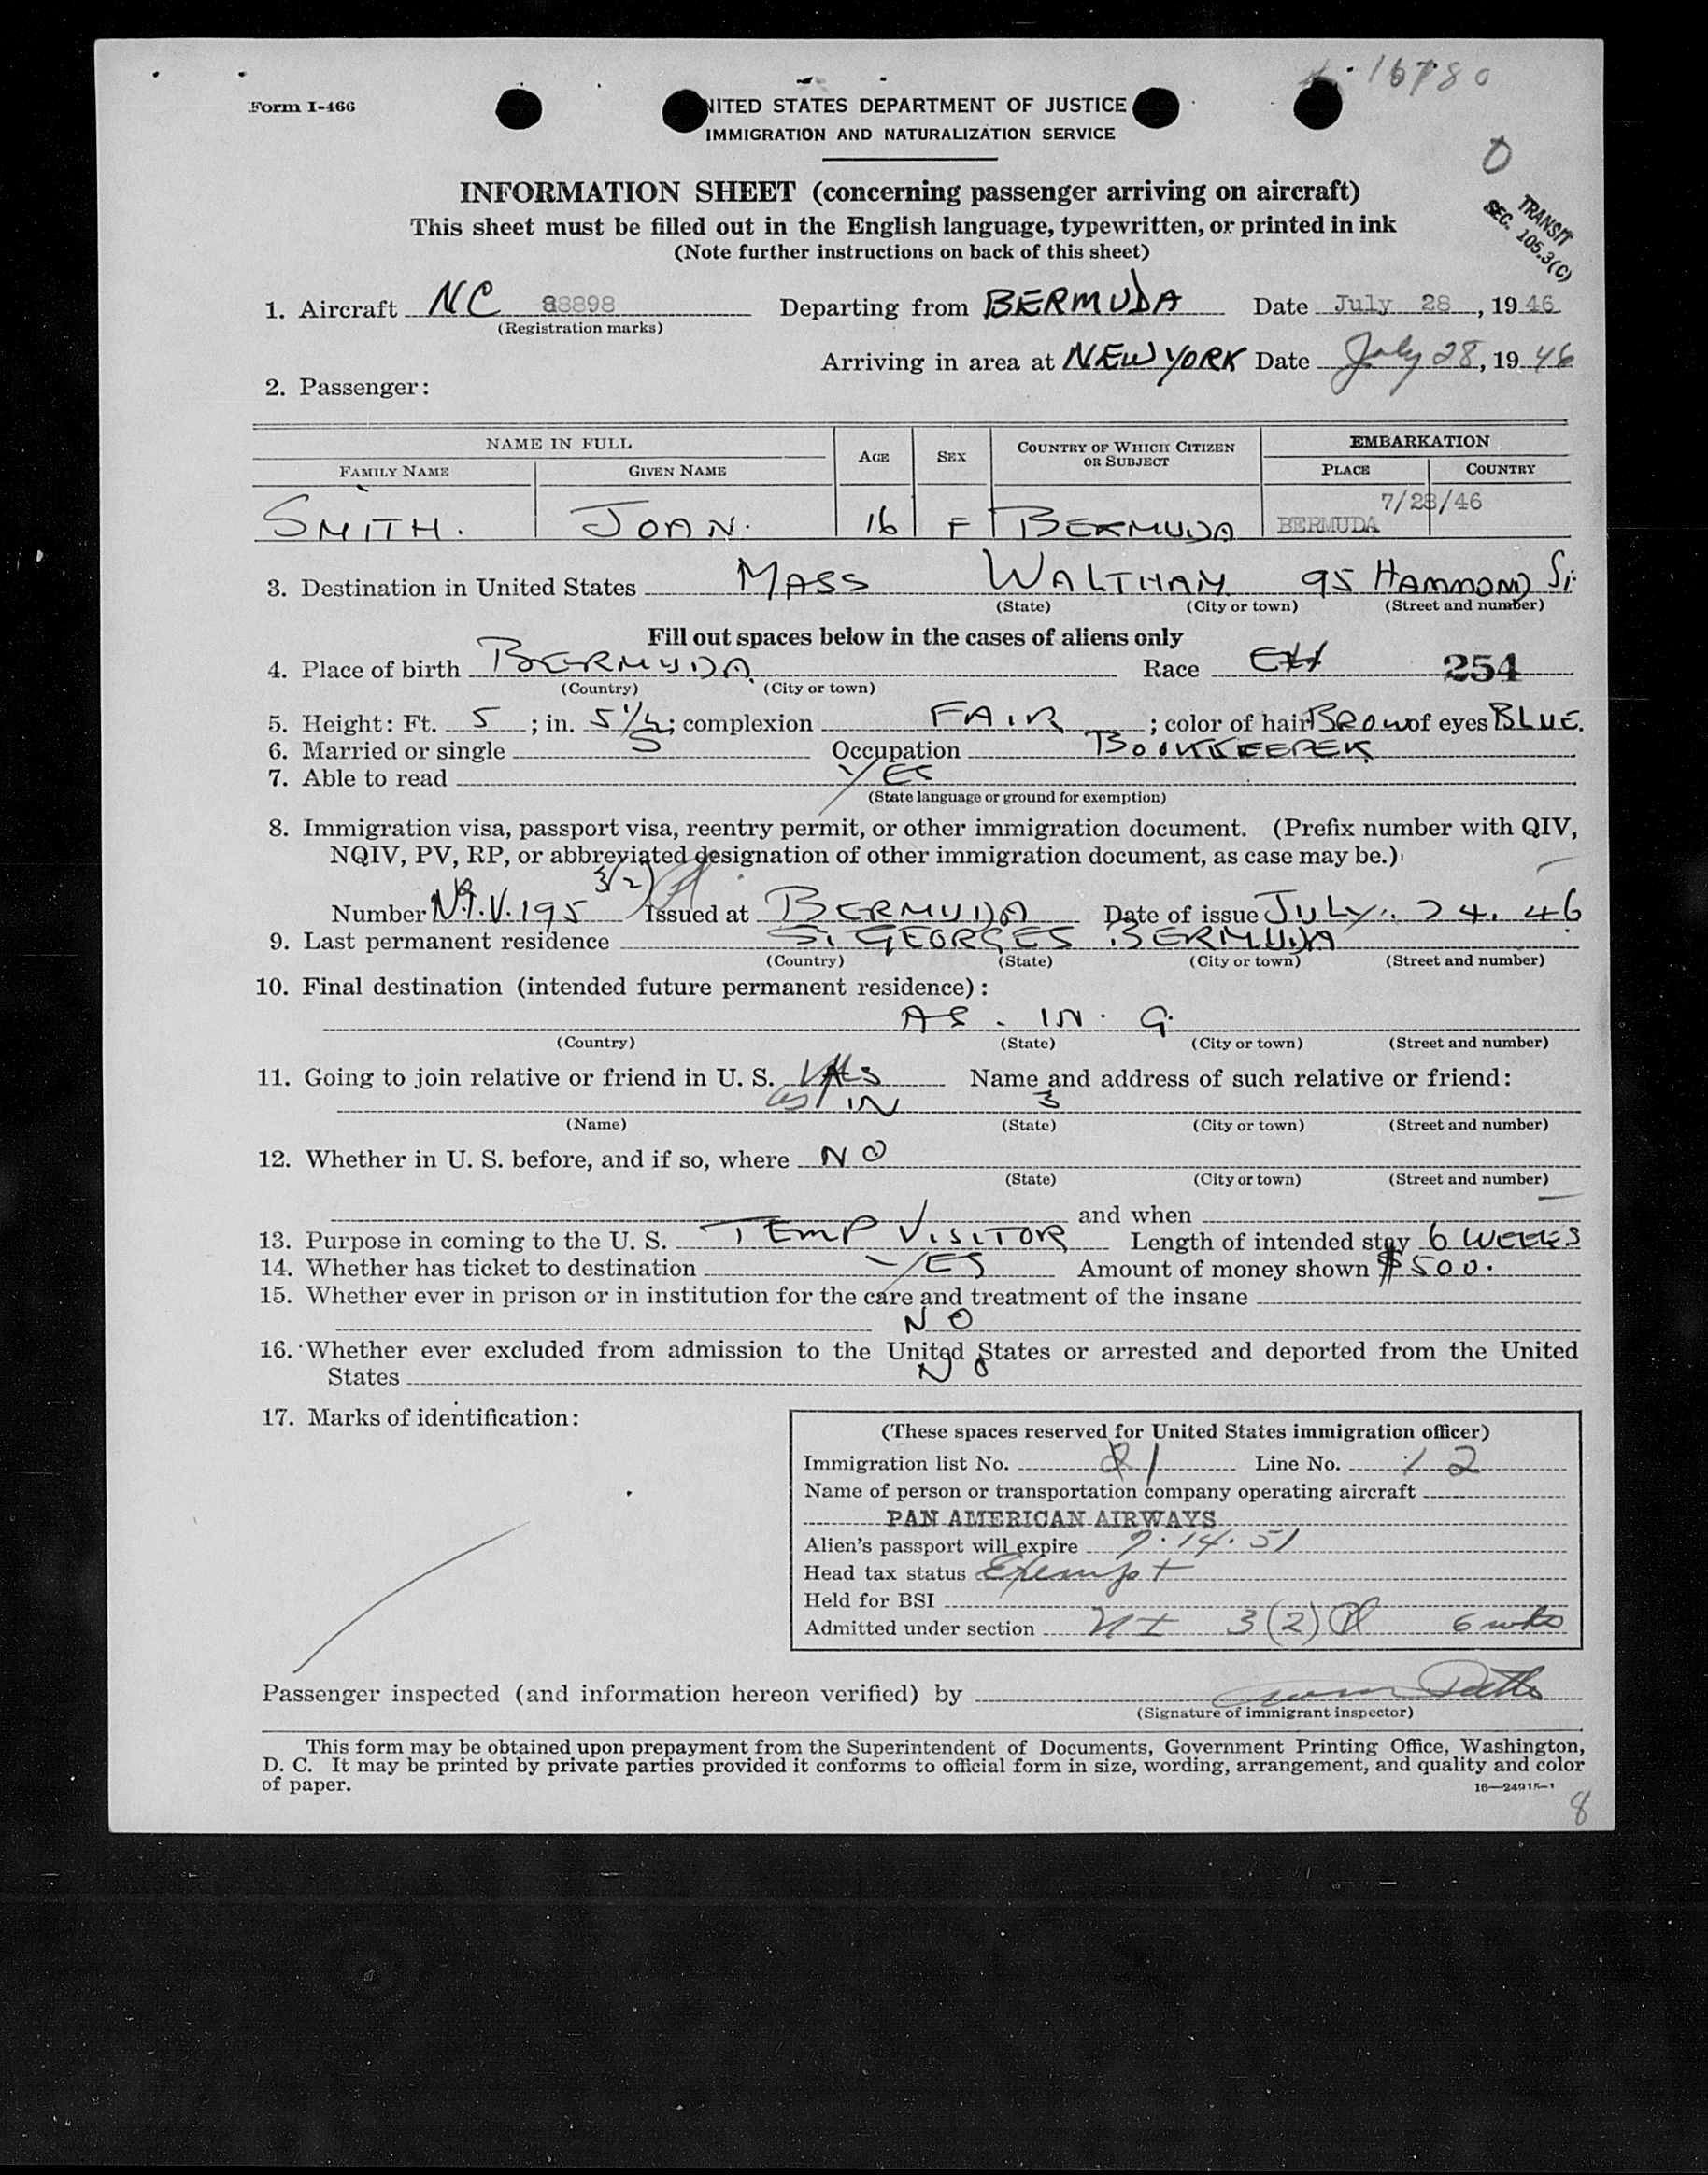 16780
Form I-466
NITED STATES DEPARTMENT OF JUSTICE
IMMIGRATION AND NATURALIZATION SERVICE
O
TRANSIT
SEC. 105.3(C)
INFORMATION SHEET (concerning passenger arriving on aircraft)
This sheet must be filled out in the English language, typewritten, or printed in ink
(Note further instructions on back of this sheet)
1. Aircraft NC 88898 Departing from BERMUDA Date July 28, 1946
(Registration marks)
Arriving in area at NEW YORK Date July 28, 1946
2. Passenger:
NAME IN FULL AGE SEX COUNTRY OF WHICH CITIZEN OR SUBJECT EMBARKATION
FAMILY NAME GIVEN NAME PLACE COUNTRY
7/28/46
SMITH. JOAN. 16 F BERMUDA BERMUDA
3. Destination in United States MASS WALTHAM 95 HAMMOND St.
(State) (City or town) (Street and number)
Fill out spaces below in the cases of aliens only
4. Place of birth BERMUDA Race 254
(Country) (City or town)
5. Height: Ft. 5; in. 5 1/2; complexion FAIR; color of hair BROW of eyes BLUE.
6. Married or single S Occupation BOOKKEEPER
7. Able to read YES
(State language or ground for exemption)
8. Immigration visa, passport visa, reentry permit, or other immigration document. (Prefix number with QIV,
NQIV, PV, RP, or abbreviated designation of other immigration document, as case may be.)
3(2)
Number N.I.V. 195 Issued at BERMUDA Date of issue JULY. 24. 46
9. Last permanent residence St GEORGES BERMUDA
(Country) (State) (City or town) (Street and number)
10. Final destination (intended future permanent residence):
AS. IN. 9.
(Country) (State) (City or town) (Street and number)
11. Going to join relative or friend in U. S. Name and address of such relative or friend:
as IN 3
(Name) (State) (City or town) (Street and number)
12. Whether in U. S. before, and if so, where NO
(State) (City or town) (Street and number)
and when
13. Purpose in coming to the U. S. TEMP VISITOR Length of intended stay 6 WEEKS
14. Whether has ticket to destination YES Amount of money shown $500.
15. Whether ever in prison or in institution for the care and treatment of the insane
NO
16. Whether ever excluded from admission to the United States or arrested and deported from the United
States NO
17. Marks of identification:
(These spaces reserved for United States immigration officer)
Immigration list No. 21 Line No. 12
Name of person or transportation company operating aircraft
PAN AMERICAN AIRWAYS
Alien's passport will expire 7.14.51
Head tax status Exempt
Held for BSI
Admitted under section NI 3(2) 6 wks
Passenger inspected (and information hereon verified) by
(Signature of immigrant inspector)
This form may be obtained upon prepayment from the Superintendent of Documents, Government Printing Office, Washington,
D. C. It may be printed by private parties provided it conforms to official form in size, wording, arrangement, and quality and color
of paper.
16—24915-1
8